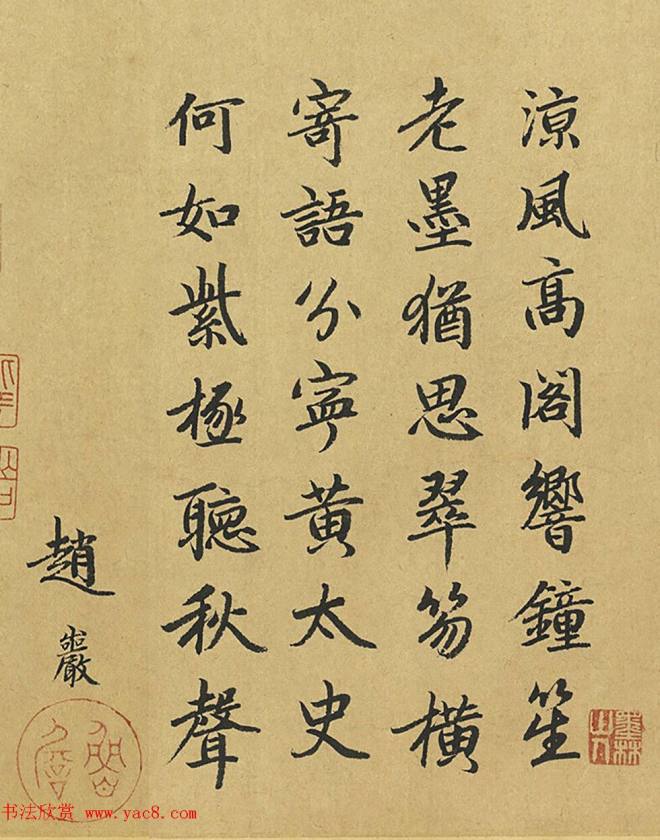 涼風高閣響鐘笙
老墨猶思翠笏橫
寄語分寧黃太史
何如紫極聽秋聲
趙巖
书法欣赏 www.yac8.com